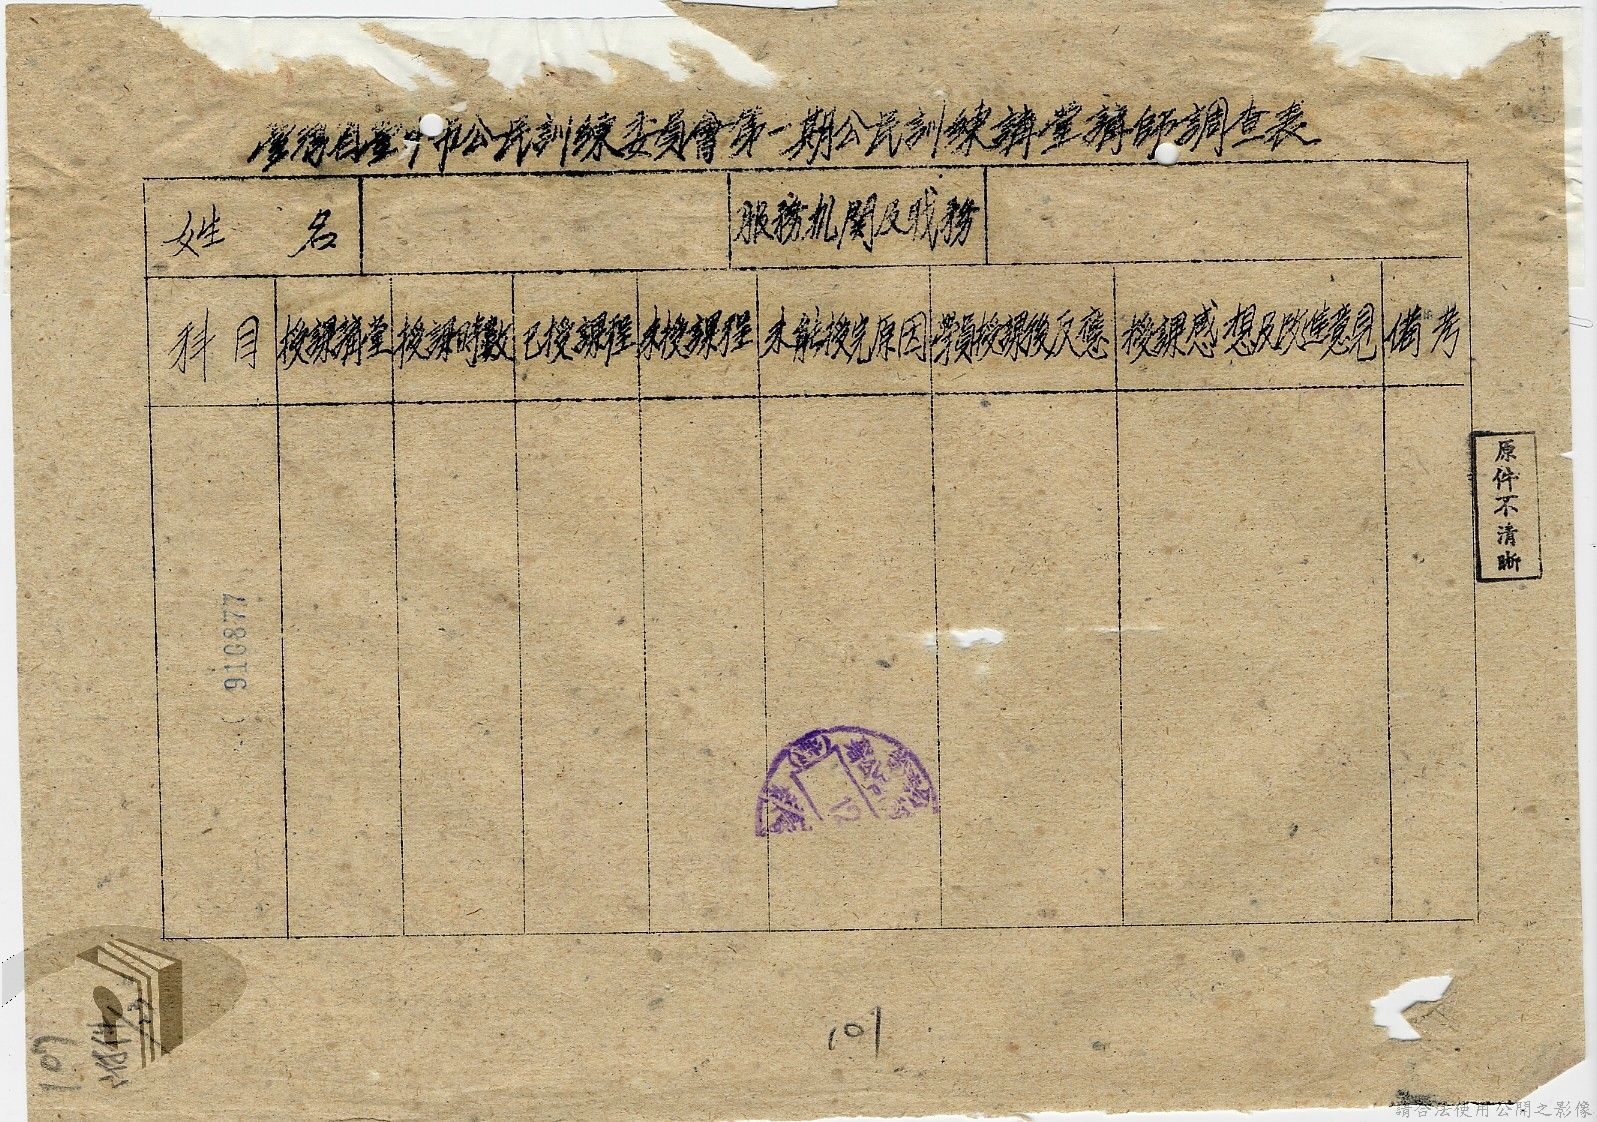 市公民訓練委員會第一期公民訓練講堂講師調查表
姓名
服務机関及戝務
科目
授課講堂
授課時數
已授課程
未授課程
未能授完原因
學員授課後反應
授課感想及改進意見
備考
原件不清晰
910877
12
101
107
請合法使用公開之影像